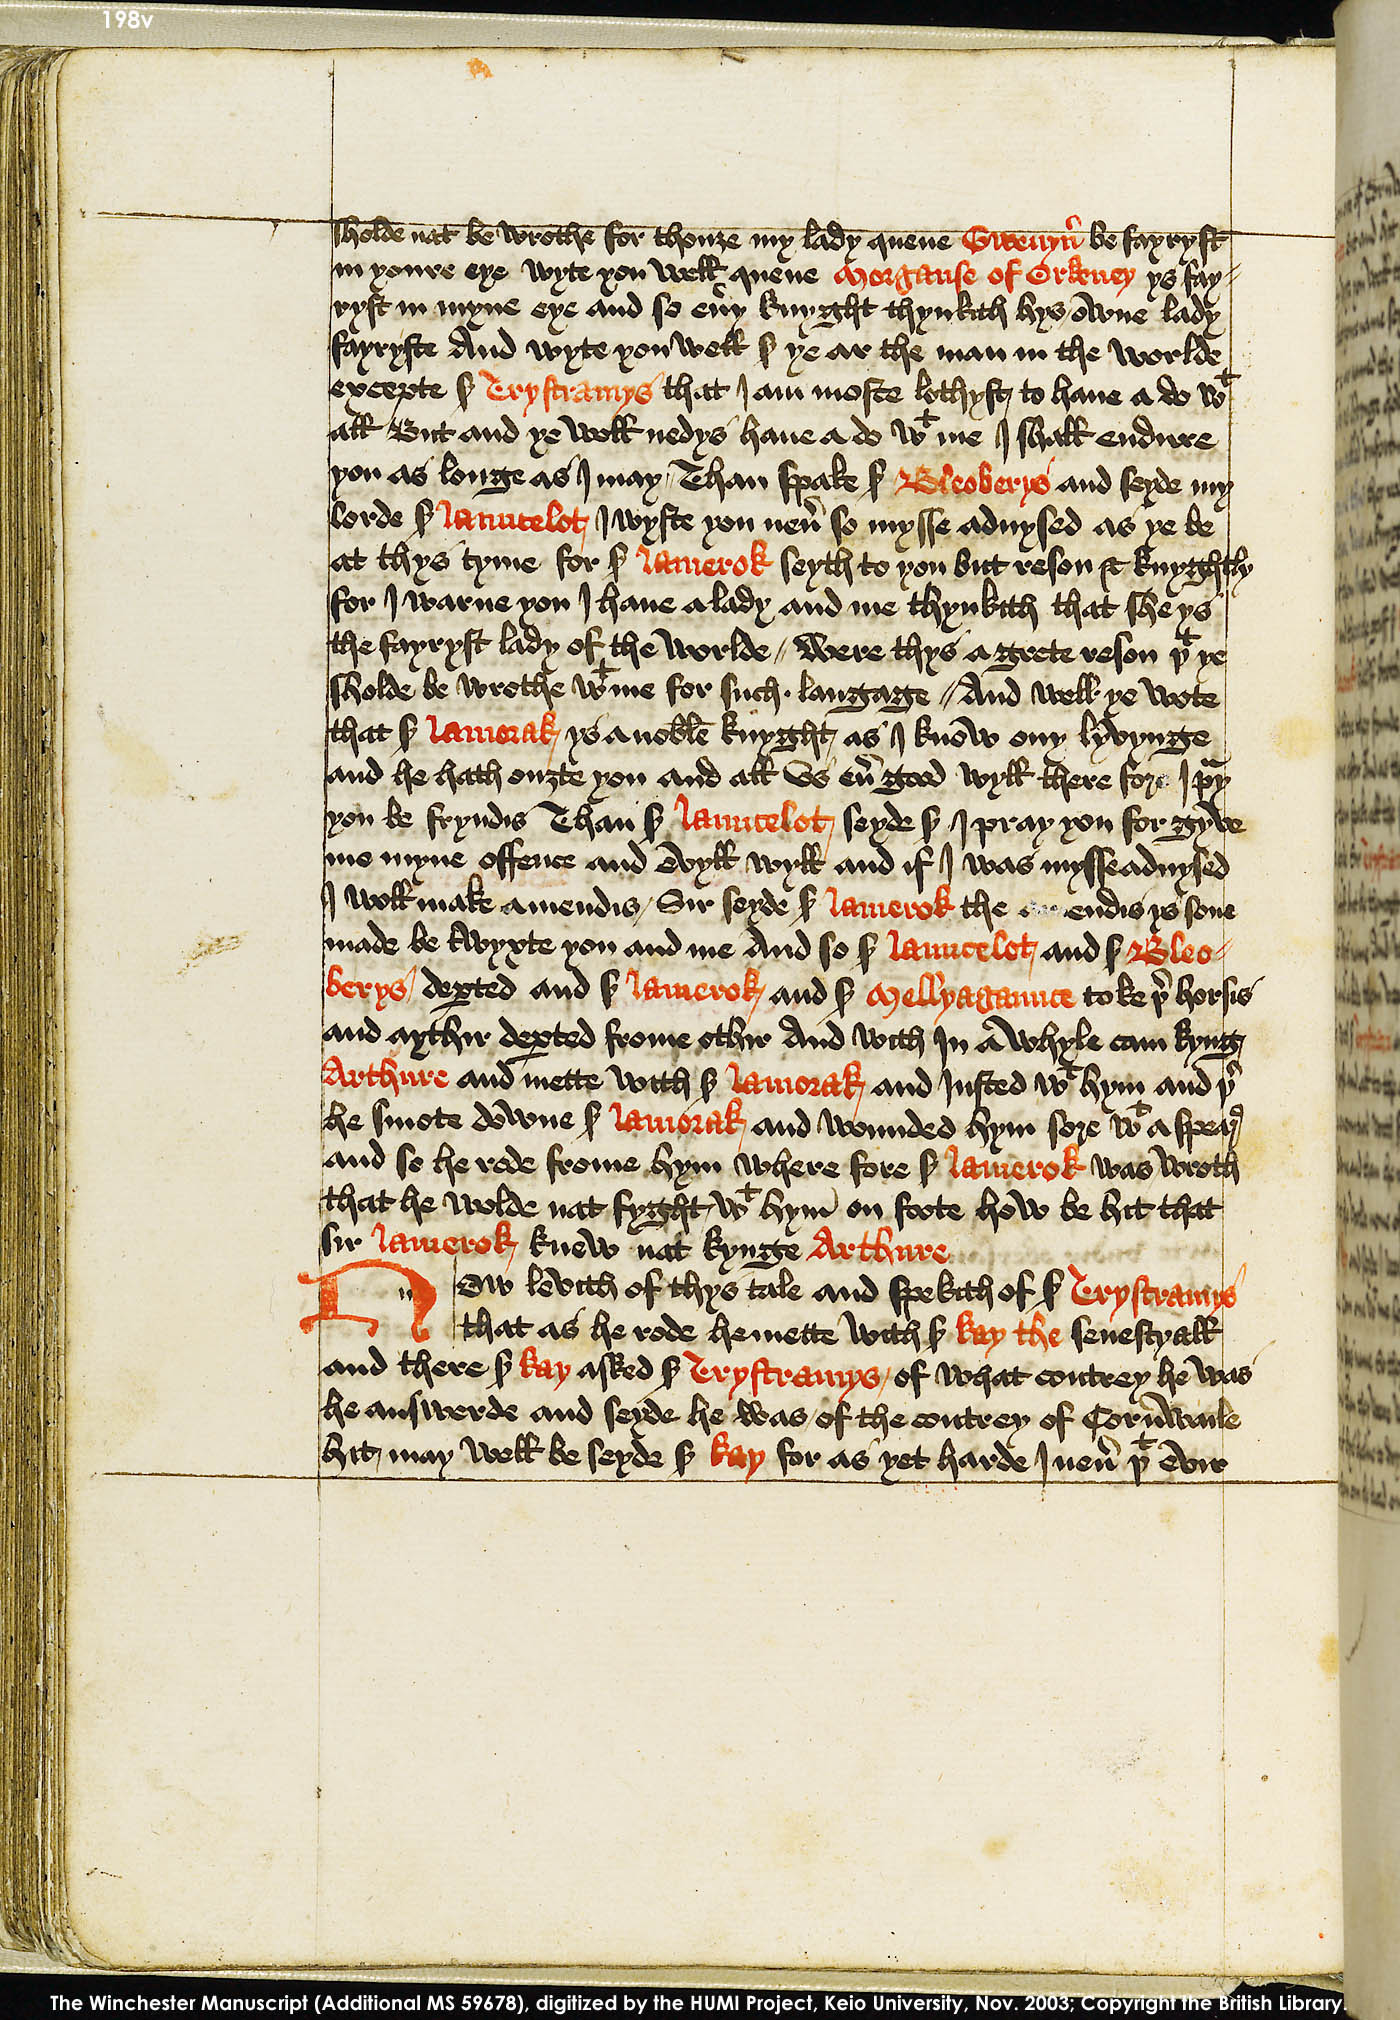 198v
sholde nat be wrothe for thouȝe my lady quene Gwenyũ be fayryst
in youre eye wyte you well quene Morgause of Orkeney ys fay-
ryst in myne eye and so eũy knyght thynkith hys owne lady
fayryste And wyte you well sʳ ye ar the man in the worlde
excepte sʳ Trystramys that I am moste lothyst to haue a do wᵗ
all But and ye woll nedys haue a do wᵗ me I shall endure
you as longe as I may / Than spake sʳ Bleoberys and seyde my
lorde sʳ launcelot I wyste you neũ so mysse aduysed as ye be
at thys tyme for sʳ lamerok seyth to you but reson & knyghtly
for I warne you I haue a lady and me thynkith that she ys
the fayryst lady of the worlde // Were thys a grete reson þᵗ ye
sholde be wrothe wᵗ me for such langage // And well ye wote
that sʳ lamorak ys a noble knyght as I know ony lyvynge
and he hath ouȝte you and all vs eũ good wyll there fore I pᵃy
you be fryndis Than sʳ launcelot seyde sʳ I pray you for gyve
me myne offence and evyll wyll and if I was mysseaduysed
I woll make amendis / Sir seyde sʳ lamerok the endis ys sone
made be twyxte you and me And so sʳ launcelot and sʳ Bleo-
berys / deꝑted and sʳ lamerok and sʳ Mellyagaunce toke þʳ horsis
and aythir deꝑted frome othir And with In a whyle cam kyng
Arthure and mette with sʳ lamorak and Iusted wᵗ hym and þʳ
he smote downe sʳ lamorak and wounded hym sore wᵗ a speaʳ
and so he rode frome hym where fore sʳ lamerok was wroth
that he wolde nat fyght wᵗ hym on foote how be hit that
sir lamerok knew nat kynge Arthure
Now levith of thys tale and spekith of sʳ Trystramys
that as he rode he mette with sʳ kay the senescyall
and there sʳ kay asked sʳ Trystramys / of what contrey he was
he answerde and seyde he was of the contrey of Cornwaile
hit may well be seyde sʳ kay for as yet harde I neũ þᵗ evir
The Winchester Manuscript (Additional MS 59678), digitized by the HUMI Project, Keio University, Nov. 2003; Copyright the British Library.